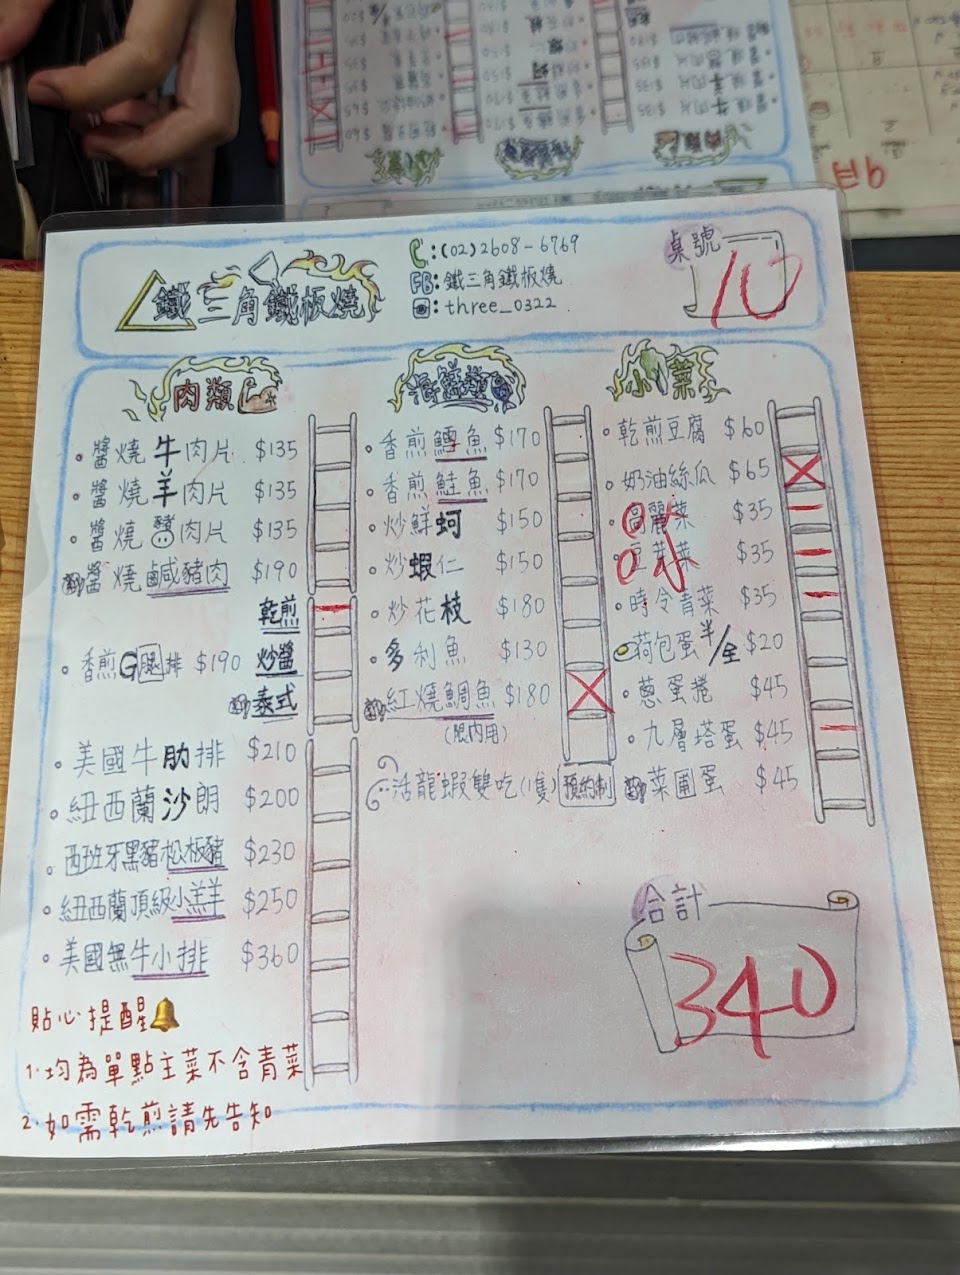 鐵三角鐵板燒
:(02)2608-6769
FB:鐵三角鐵板燒
:three_0322
桌號
10
肉類
醬燒牛肉片 $135
醬燒羊肉片 $135
醬燒豬肉片 $135
醬燒鹹豬肉 $190
乾煎
香煎G腿排 $190 炒醬
泰式
美國牛肋排 $210
紐西蘭沙朗 $200
西班牙黑豬松板豬 $230
紐西蘭頂級小羔羊 $250
美國無牛小排 $360
貼心提醒
1.均為單點主菜不含青菜
2.如需乾煎請先告知
海鮮類
香煎鱈魚 $170
香煎鮭魚 $170
炒鮮蚵 $150
炒蝦仁 $150
炒花枝 $180
多利魚 $130
紅燒鯛魚 $180
(限內用)
活龍蝦雙吃(1隻) 預約制
小菜
乾煎豆腐 $60
奶油絲瓜 $65
高麗菜 $35
豆芽菜 $35
時令青菜 $35
荷包蛋半/全 $20
蔥蛋捲 $45
九層塔蛋 $45
菜圃蛋 $45
合計
340
9月